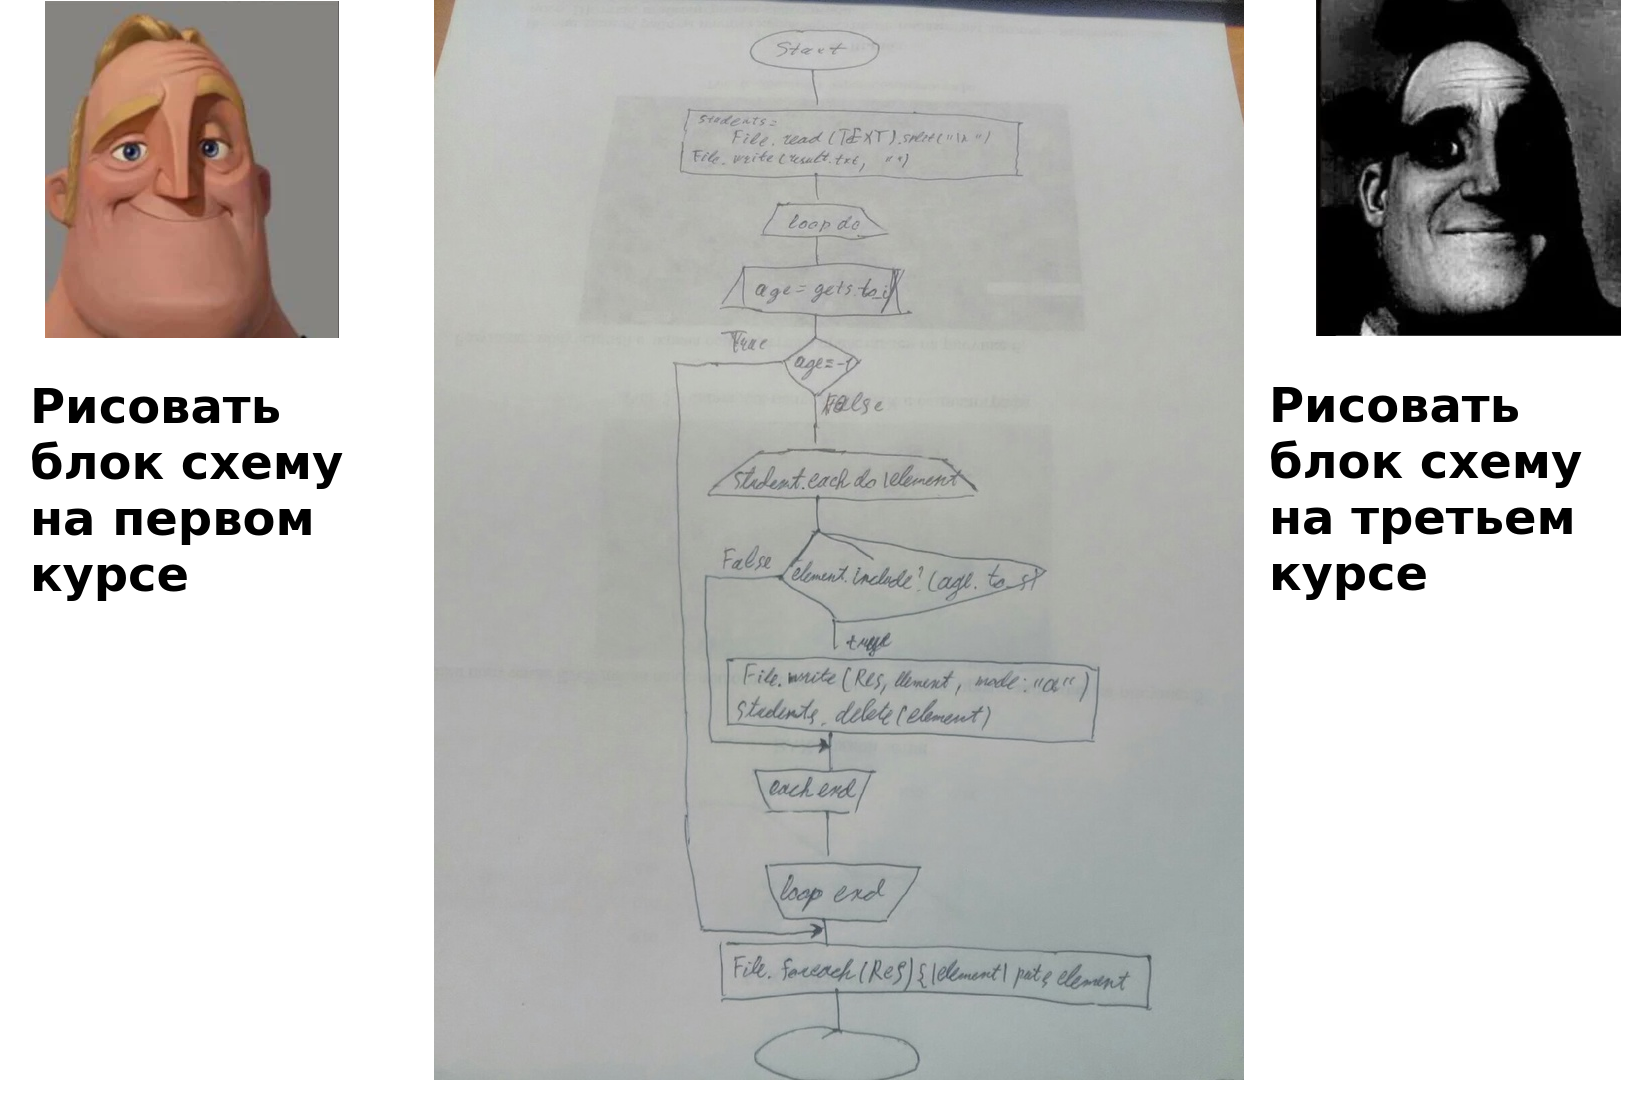 Рисовать
блок схему
на первом
курсе
Start
students=
File.read (TEXT).split("\n")
File.write(result.txt, "")
loop do
age = gets.to_i
True
age=-1
False
student.each do |element
False
element.include? (age.to_s)
true
File.write (Res, element, mode: "a")
students.delete(element)
each end
loop end
File.foreach(Res){|element| puts element
Рисовать
блок схему
на третьем
курсе